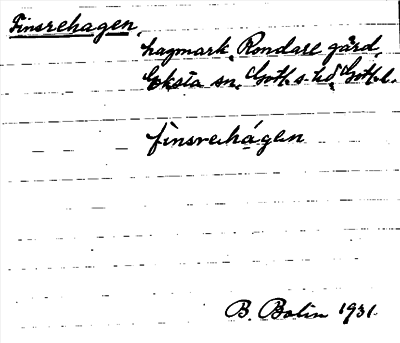 Finsrehagen
hagmark, Rondarve gård,
Eksta sn, Goth. s. hd, Gotl.
finsrehágen
B. Bolin 1931.